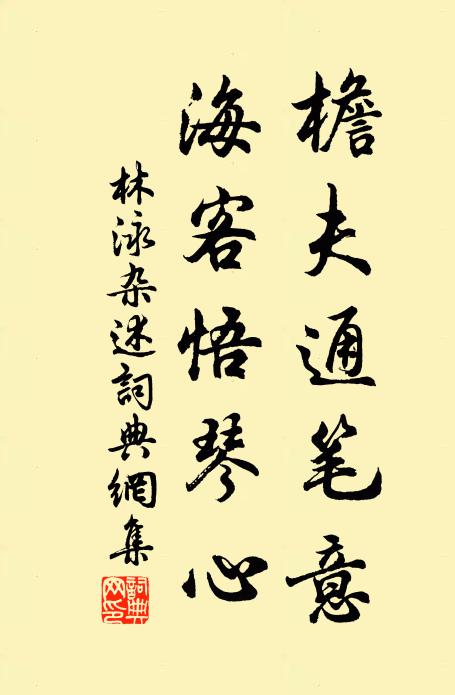 檐夫通笔意
海客悟琴心
林泳杂述詞典網集
詞典网印